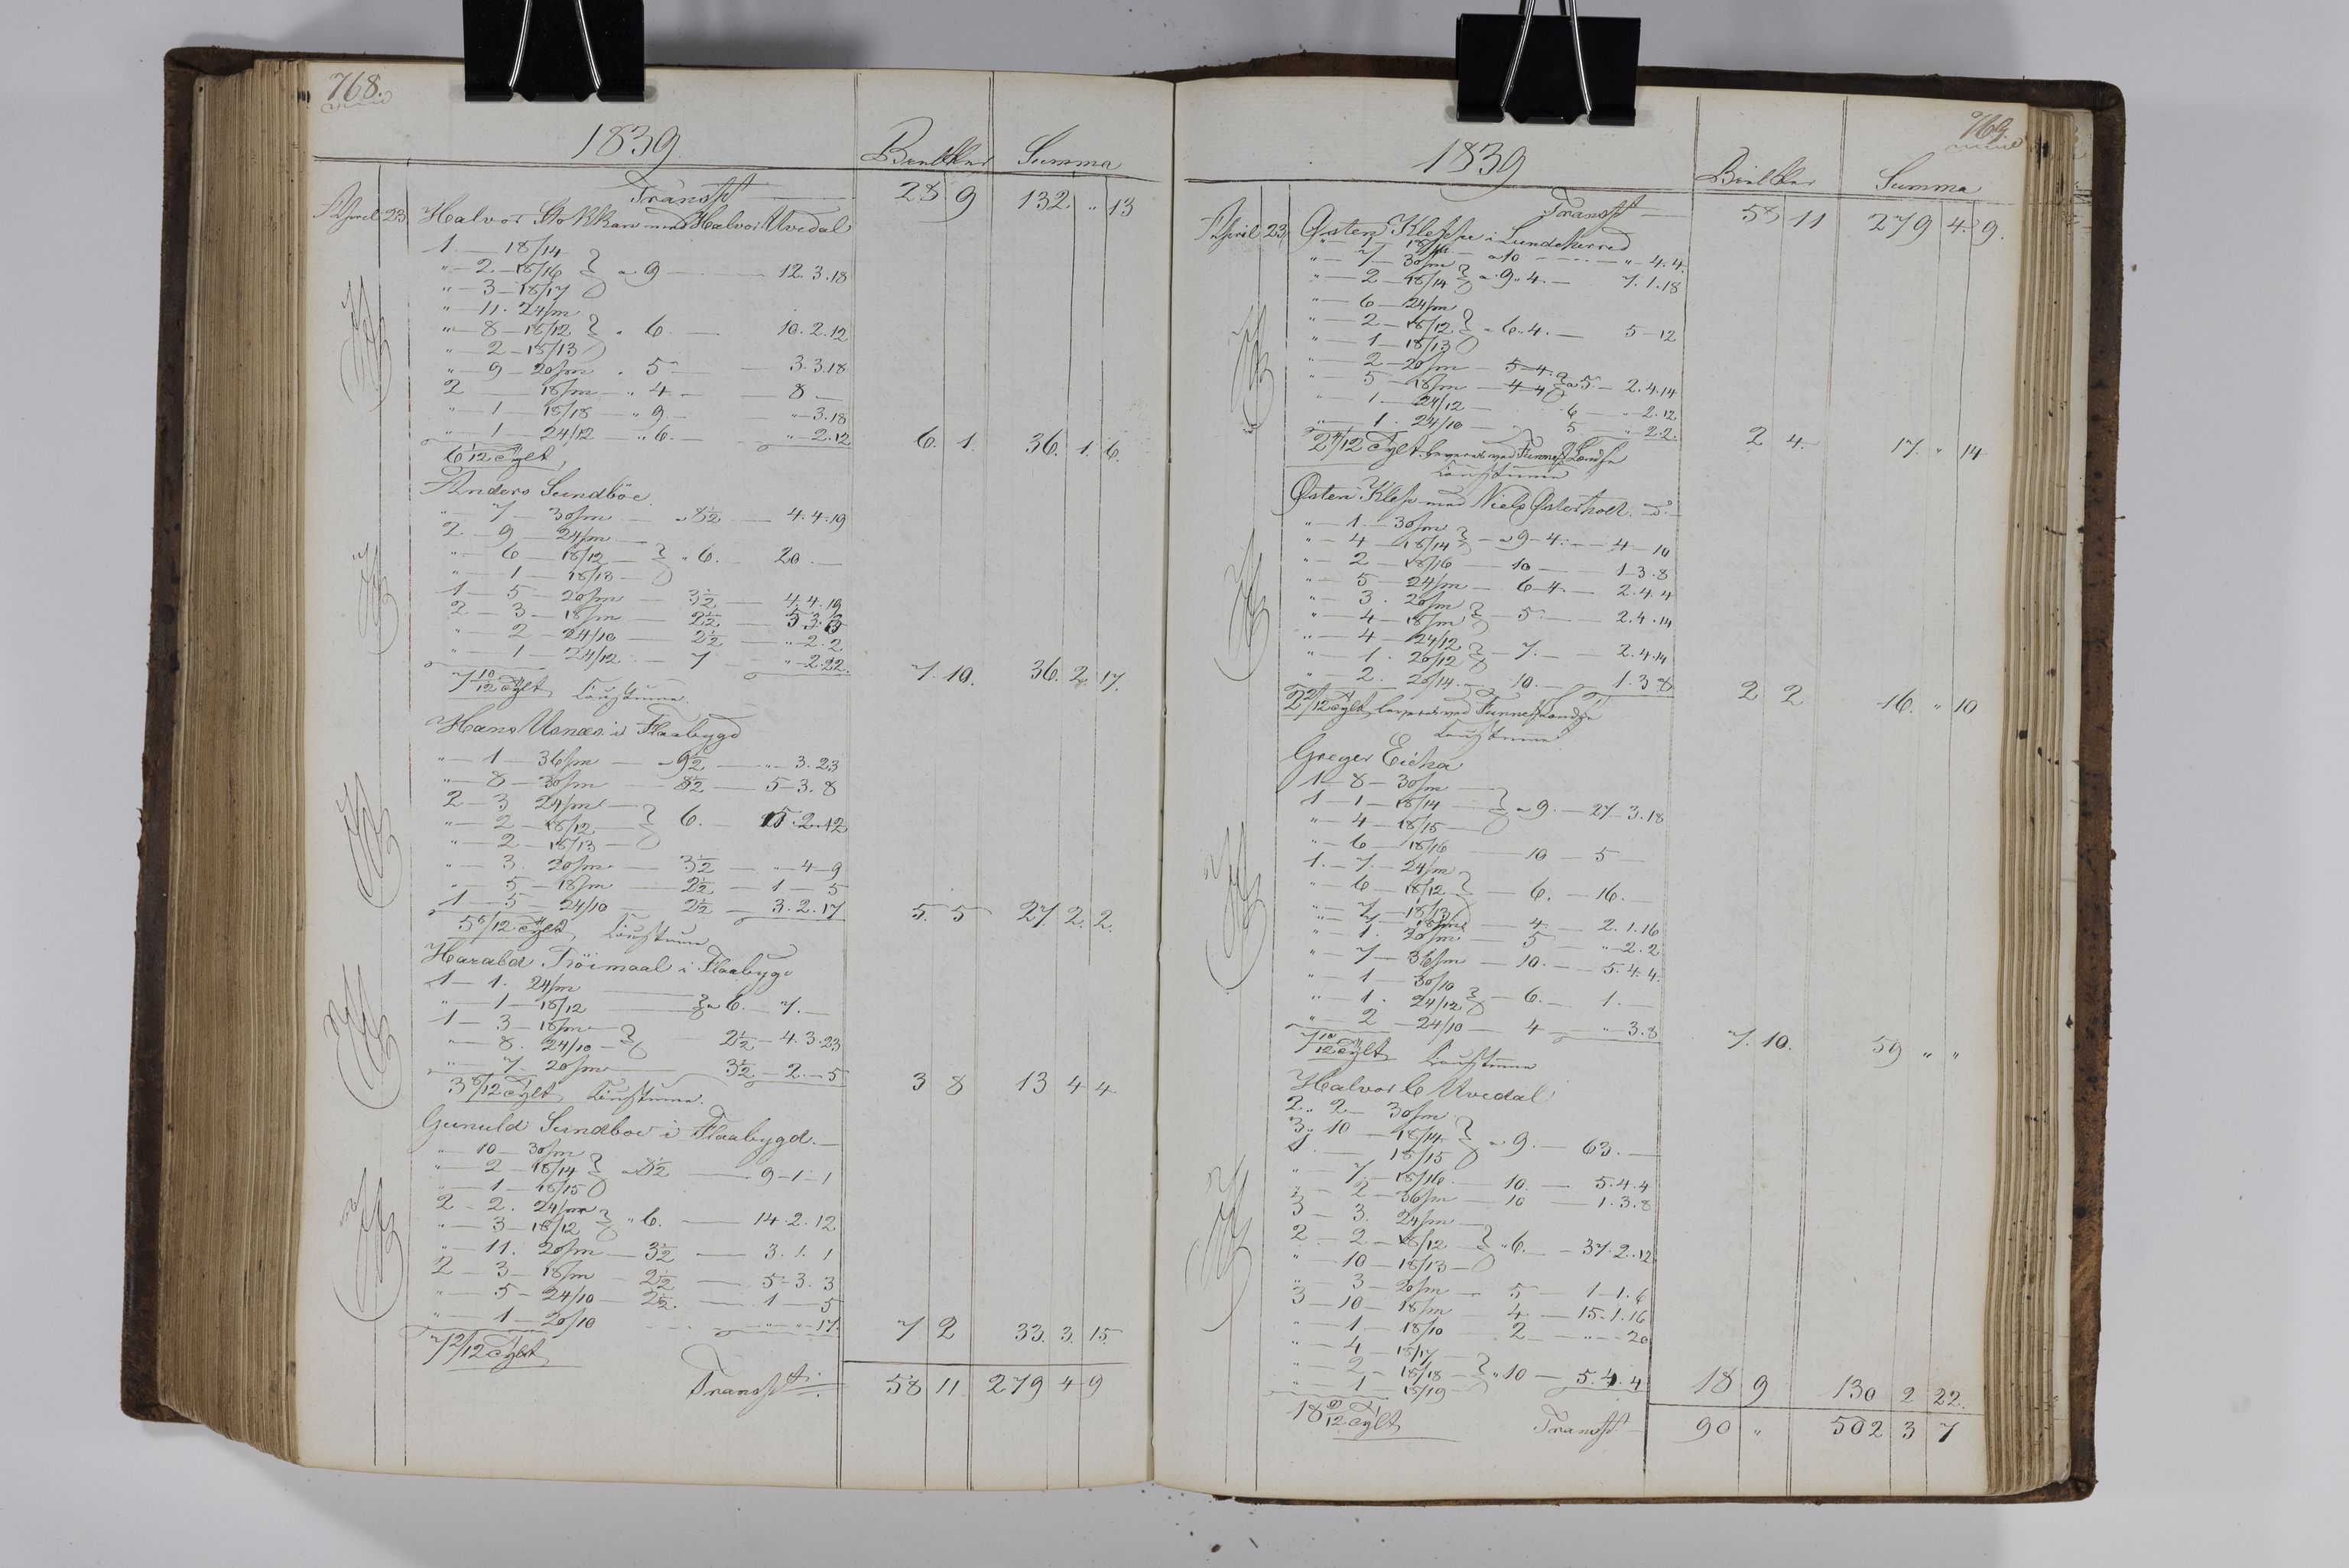 768.
1839 Bielkker Summa
Transpt 28 9 132 " 13
April 23 Halvor Stokkan med Halvor Uvedal
1 — 18/14
" — 2 — 18/16 } a 9 — 12.3.18
" — 3 — 18/17
" — 11. 24/m
" — 8 — 18/12 } " 6. — 10.2.12
" — 2 — 18/13
" — 9 — 20/m " 5 — 3.3.18
2 — 18/m — " 4 — 8 —
" — 1 — 18/18 — " 9 — " — 3.18
" — 1 — 24/12 — " 6. — " — 2.12
6 1/12 Tylt 6. 1. 36. 1. 6.
Anders Sundböe
" — 7 — 30/m — a 8½ — 4.4.19
2 — 9 — 24/m
" — 6 — 18/12 — } " 6. — 20. —
" — 1 — 18/13
1 — 5 — 20/m — 3½ — 4.4.19
2 — 3 — 18/m — 2½ — 5.3.3
" — 2 — 24/10 — 2½ — " — 2.2
" — 1 — 24/12 — 7 — " — 2.22.
7 10/12 Tylt 7. 10. 36. 2. 17.
Hans Usnæs i Flaabygd
" — 1 — 36/m — a 9½ — " — 3.23
" — 8 — 30/m — 8½ — 5 — 3.8
2 — 3 24/m
" — 2 — 18/12 — } 6. — 15.2.12
" — 2 — 18/13
" — 3. 20/m — 3½ — " — 4 — 9
" — 5 — 18/m — 2½ — 1 — 5
1 — 5 — 24/10 — 2½ — 3.2.17
5 5/12 Tylt 5. 5 27. 2. 2.
Harald Röimaal i Flaabygd
1 — 1. 24/m
" — 1 — 18/12 } a 6. 7. —
1 — 3 — 18/m
" — 8. 24/10 — } 2½ — 4.3.23
" — 7 — 20/m 3½ — 2. — 5
3 8/12 Tylt 3 8 13 4 4
Gunuld Sundboe i Flaabygd. —
" — 10 — 30/m
" — 2 — 18/14 } a 8½ — 9 — 1 — 1
" — 1 — 18/15
2 — 2. 24/m
" — 3 — 18/12 } " 6. — 14.2.12
" — 11. 20/m — 3½ — 3.1.1
2 — 3 — 18/m — 2½ — 5 — 3.3
" — 5 — 24/10 — 2½. — 1 — 5
" — 1 — 20/10 — " — " — 17.
7 2/12 Tylt 7 2 33. 3. 15
Transpt 58 11 279 4 9
769.
1839 Bielkker Summa
Transpt 58 11 279 4. 9.
April 23 Østen Kleppe i Lundeherred
" — 1 — 18/16 — a 10 — " — 4.4.
" — 7 — 30/m
" — 2 — 18/14 } a 9 " 4. — 7.1.18
" — 6 — 24/m
" — 2 — 18/12 } " 6 " 4. — 5 — 12
" — 1 — 18/13
" — 2 — 20/m — 5 — 4.
" — 5 — 18/m — 4 — 4 } a 5 — 2.4.14
" — 1 — 24/12 — 6 — " — 2.12
" — 1. 24/10 — 5 — " 2.2.
2 4/12 Tylt 2 4 17. " 14
Østen Klep med Niels Østerholt.
" — 1. — 30/m
" — 4 — 18/14 } — a 9 — 4. — 4 — 10
" — 2 — 18/16 — 10 — 1 — 3.8
" — 5 — 24/m — 6 — 4. — 2.4.4
" — 3. 20/m
" — 4 — 18/m } — 5 — 2.4.14
" — 4 — 24/12
" — 1. 20/12 } — 7. — 2.4.14
" — 2. 20/14 — 10. — 1.3 8
2 2/12 Tylt 2 2 16. " 10
Greger Eicha
1 — 8 — 30/m
1 — 1 — 18/14 — } a 9. — 27 — 3.18
" — 4 — 18/15
" — 6 — 18/16 — 10 — 5 —
1. — 7. — 24/m
" — 6 — 18/12 } — 6. — 16. —
" — 7 — 18/13
" — 7 — 18/m — 4 — 2.1.16
" — 1. 20/m — 5 — " — 2.2
" — 7 — 36/m — 10. — 5.4.4
" — 1 — 30/10
" — 1. 24/12 } — 6. — 1. —
" — 2 — 24/10 — 4 — " — 3.8
7 10/12 Tylt 7. 10. 59 " "
Halvor C Uvedal
2 " 2 — 30/m
3 " 10 — 18/14 } — a 9. — 63. —
1 — 18/15
" — 7 — 18/16 — 10. — 5.4.4
" — 2 — 36/m — 10 — 1.3.8
3 — 3. 24/m
2 — 2 — 18/12 } " 6. — 37.2.12
" — 10 — 18/13
" — 3 — 20/m — 5 — 1 — 1.6
3 — 10 — 18/m — 4 — 15.1.16
" — 1 — 18/10 2 — " — 20
" — 4 — 18/17
" — 2 — 18/18 — } " 10 — 5.4.4
" — 1 — 18/19
18 9/12 Tylt 18 9 130 2 22.
Transpt 90 " 502 3 7